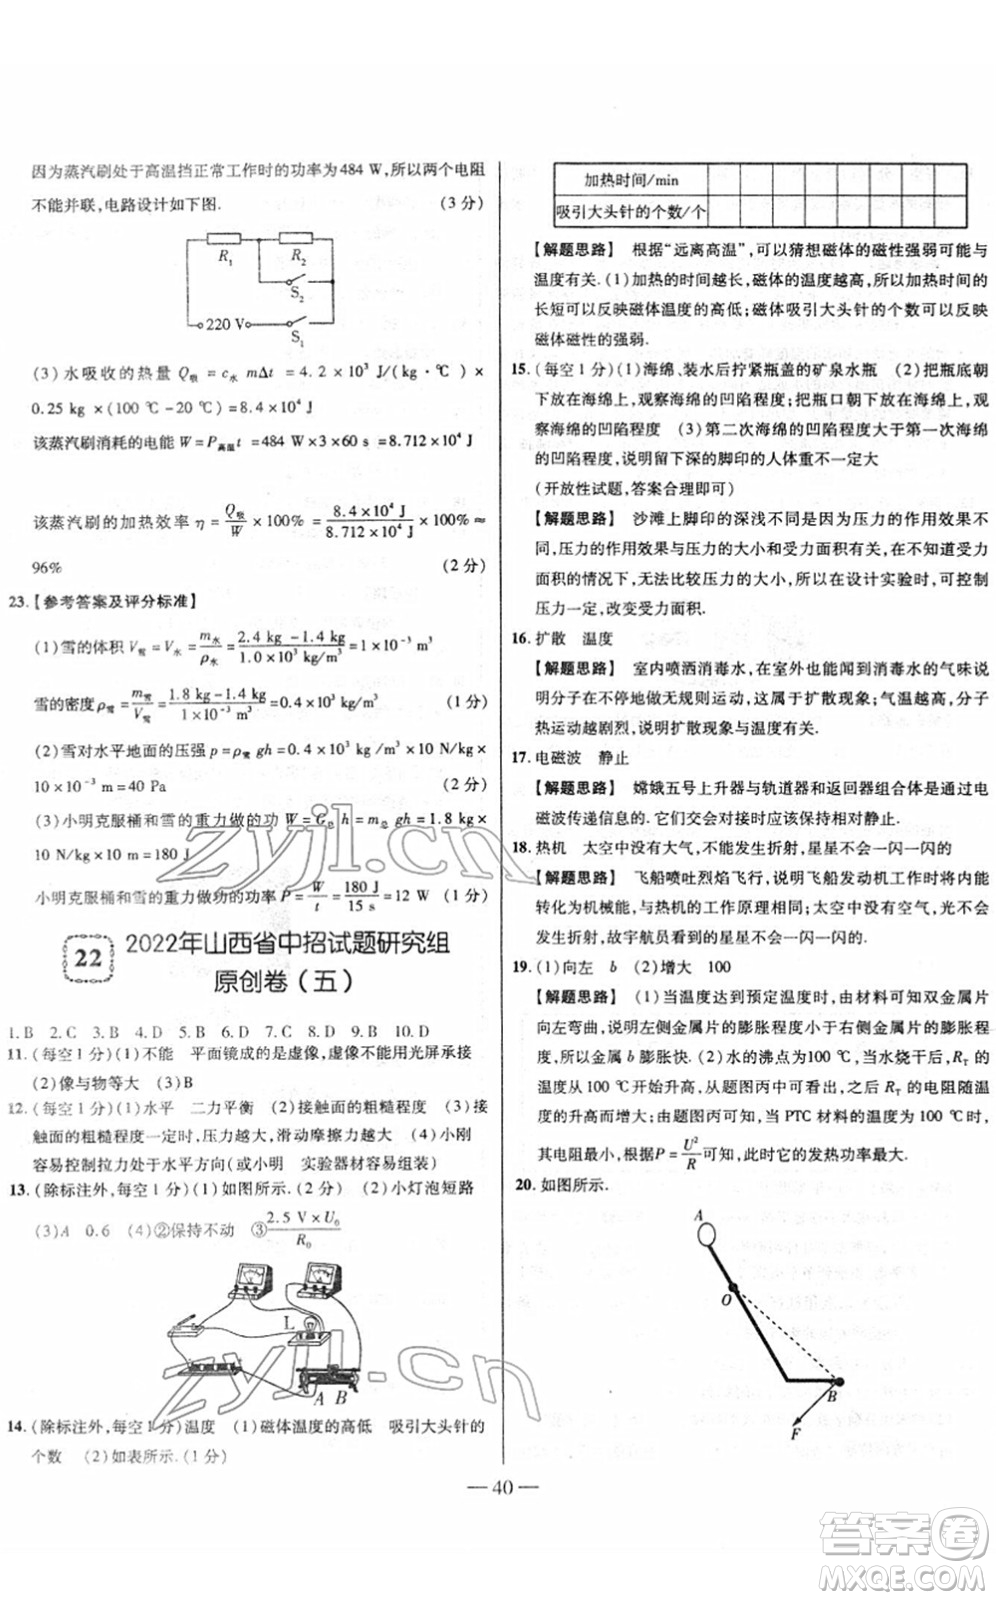 因为蒸汽刷处于高温挡正常工作时的功率为484 W,所以两个电阻
不能并联,电路设计如下图. (3分)
R₁ R₂
S₂
220 V
S₁
(3)水吸收的热量 Q吸 = c水 mΔt = 4.2×10³ J/(kg·℃)×
0.25 kg×(100 ℃-20 ℃)=8.4×10⁴ J
该蒸汽刷消耗的电能 W=P高温t=484 W×3×60 s=8.712×10⁴ J
该蒸汽刷的加热效率 η = Q吸/W ×100% = 8.4×10⁴ J/8.712×10⁴ J ×100%≈
96% (2分)
23.【参考答案及评分标准】
(1)雪的体积 V雪=V水=m水/ρ水=(2.4 kg-1.4 kg)/(1.0×10³ kg/m³)=1×10⁻³ m³
雪的密度 ρ雪=m雪/V雪=(1.8 kg-1.4 kg)/(1×10⁻³ m³)=0.4×10³ kg/m³ (1分)
(2)雪对水平地面的压强 p=ρ雪 gh=0.4×10³ kg/m³×10 N/kg×
10×10⁻³ m=40 Pa (2分)
(3)小明克服桶和雪的重力做的功 W=G总 h=m总 gh=1.8 kg×
10 N/kg×10 m=180 J
小明克服桶和雪的重力做功的功率 P=W/t=180 J/15 s=12 W (1分)
22 2022年山西省中招试题研究组
原创卷(五)
1.B 2.C 3.B 4.A 5.B 6.D 7.C 8.D 9.B 10.D
11.(每空1分)(1)不能 平面镜成的是虚像,虚像不能用光屏承接
(2)像与物等大 (3)B
12.(每空1分)(1)水平 二力平衡 (2)接触面的粗糙程度 (3)接
触面的粗糙程度一定时,压力越大,滑动摩擦力越大 (4)小刚
容易控制拉力处于水平方向(或小明 实验器材容易组装)
13.(除标注外,每空1分)(1)如图所示.(2分) (2)小灯泡短路
(3)A 0.6 (4)②保持不动 ③2.5 V×U₀/R₀
L
A B
14.(除标注外,每空1分)温度 (1)磁体温度的高低 吸引大头针的
个数 (2)如表所示.(1分)
加热时间/min
吸引大头针的个数/个
【解题思路】 根据“远离高温”,可以猜想磁体的磁性强弱可能与
温度有关.(1)加热的时间越长,磁体的温度越高,所以加热时间的
长短可以反映磁体温度的高低;磁体吸引大头针的个数可以反映
磁体磁性的强弱.
15.(每空1分)(1)海绵、装水后拧紧瓶盖的矿泉水瓶 (2)把瓶底朝
下放在海绵上,观察海绵的凹陷程度;把瓶口朝下放在海绵上,观
察海绵的凹陷程度 (3)第二次海绵的凹陷程度大于第一次海绵
的凹陷程度,说明留下深的脚印的人体重不一定大
(开放性试题,答案合理即可)
【解题思路】 沙滩上脚印的深浅不同是因为压力的作用效果不
同,压力的作用效果与压力的大小和受力面积有关,在不知道受力
面积的情况下,无法比较压力的大小,所以在设计实验时,可控制
压力一定,改变受力面积.
16.扩散 温度
【解题思路】 室内喷洒消毒水,在室外也能闻到消毒水的气味说
明分子在不停地做无规则运动,这属于扩散现象;气温越高,分子
热运动越剧烈,说明扩散现象与温度有关.
17.电磁波 静止
【解题思路】 嫦娥五号上升器与轨道器和返回器组合体是通过电
磁波传递信息的.它们交会对接时应该保持相对静止.
18.热机 太空中没有大气,不能发生折射,星星不会一闪一闪的
【解题思路】 飞船喷吐烈焰飞行,说明飞船发动机工作时将内能
转化为机械能,与热机的工作原理相同;太空中没有空气,光不会
发生折射,故宇航员看到的星星不会一闪一闪的.
19.(1)向左 b (2)增大 100
【解题思路】 (1)当温度达到预定温度时,由材料可知双金属片
向左弯曲,说明右侧金属片的膨胀程度大于左侧金属片的膨胀程
度,所以金属 b 膨胀快.(2)水的沸点为100 ℃,当水烧干后,R_T 的
温度从100 ℃开始升高,从题图丙中可以看出,R_T 的电阻随温度
的升高而增大;由题图丙可知,当 PTC 材料的温度为100 ℃时,
其电阻最小,根据P=U²/R可知,它的发热功率最大.
20.如图所示.
A
O
B
F
— 40 —
zyjl.cn
zyjl.cn
答案卷
MXQE.COM